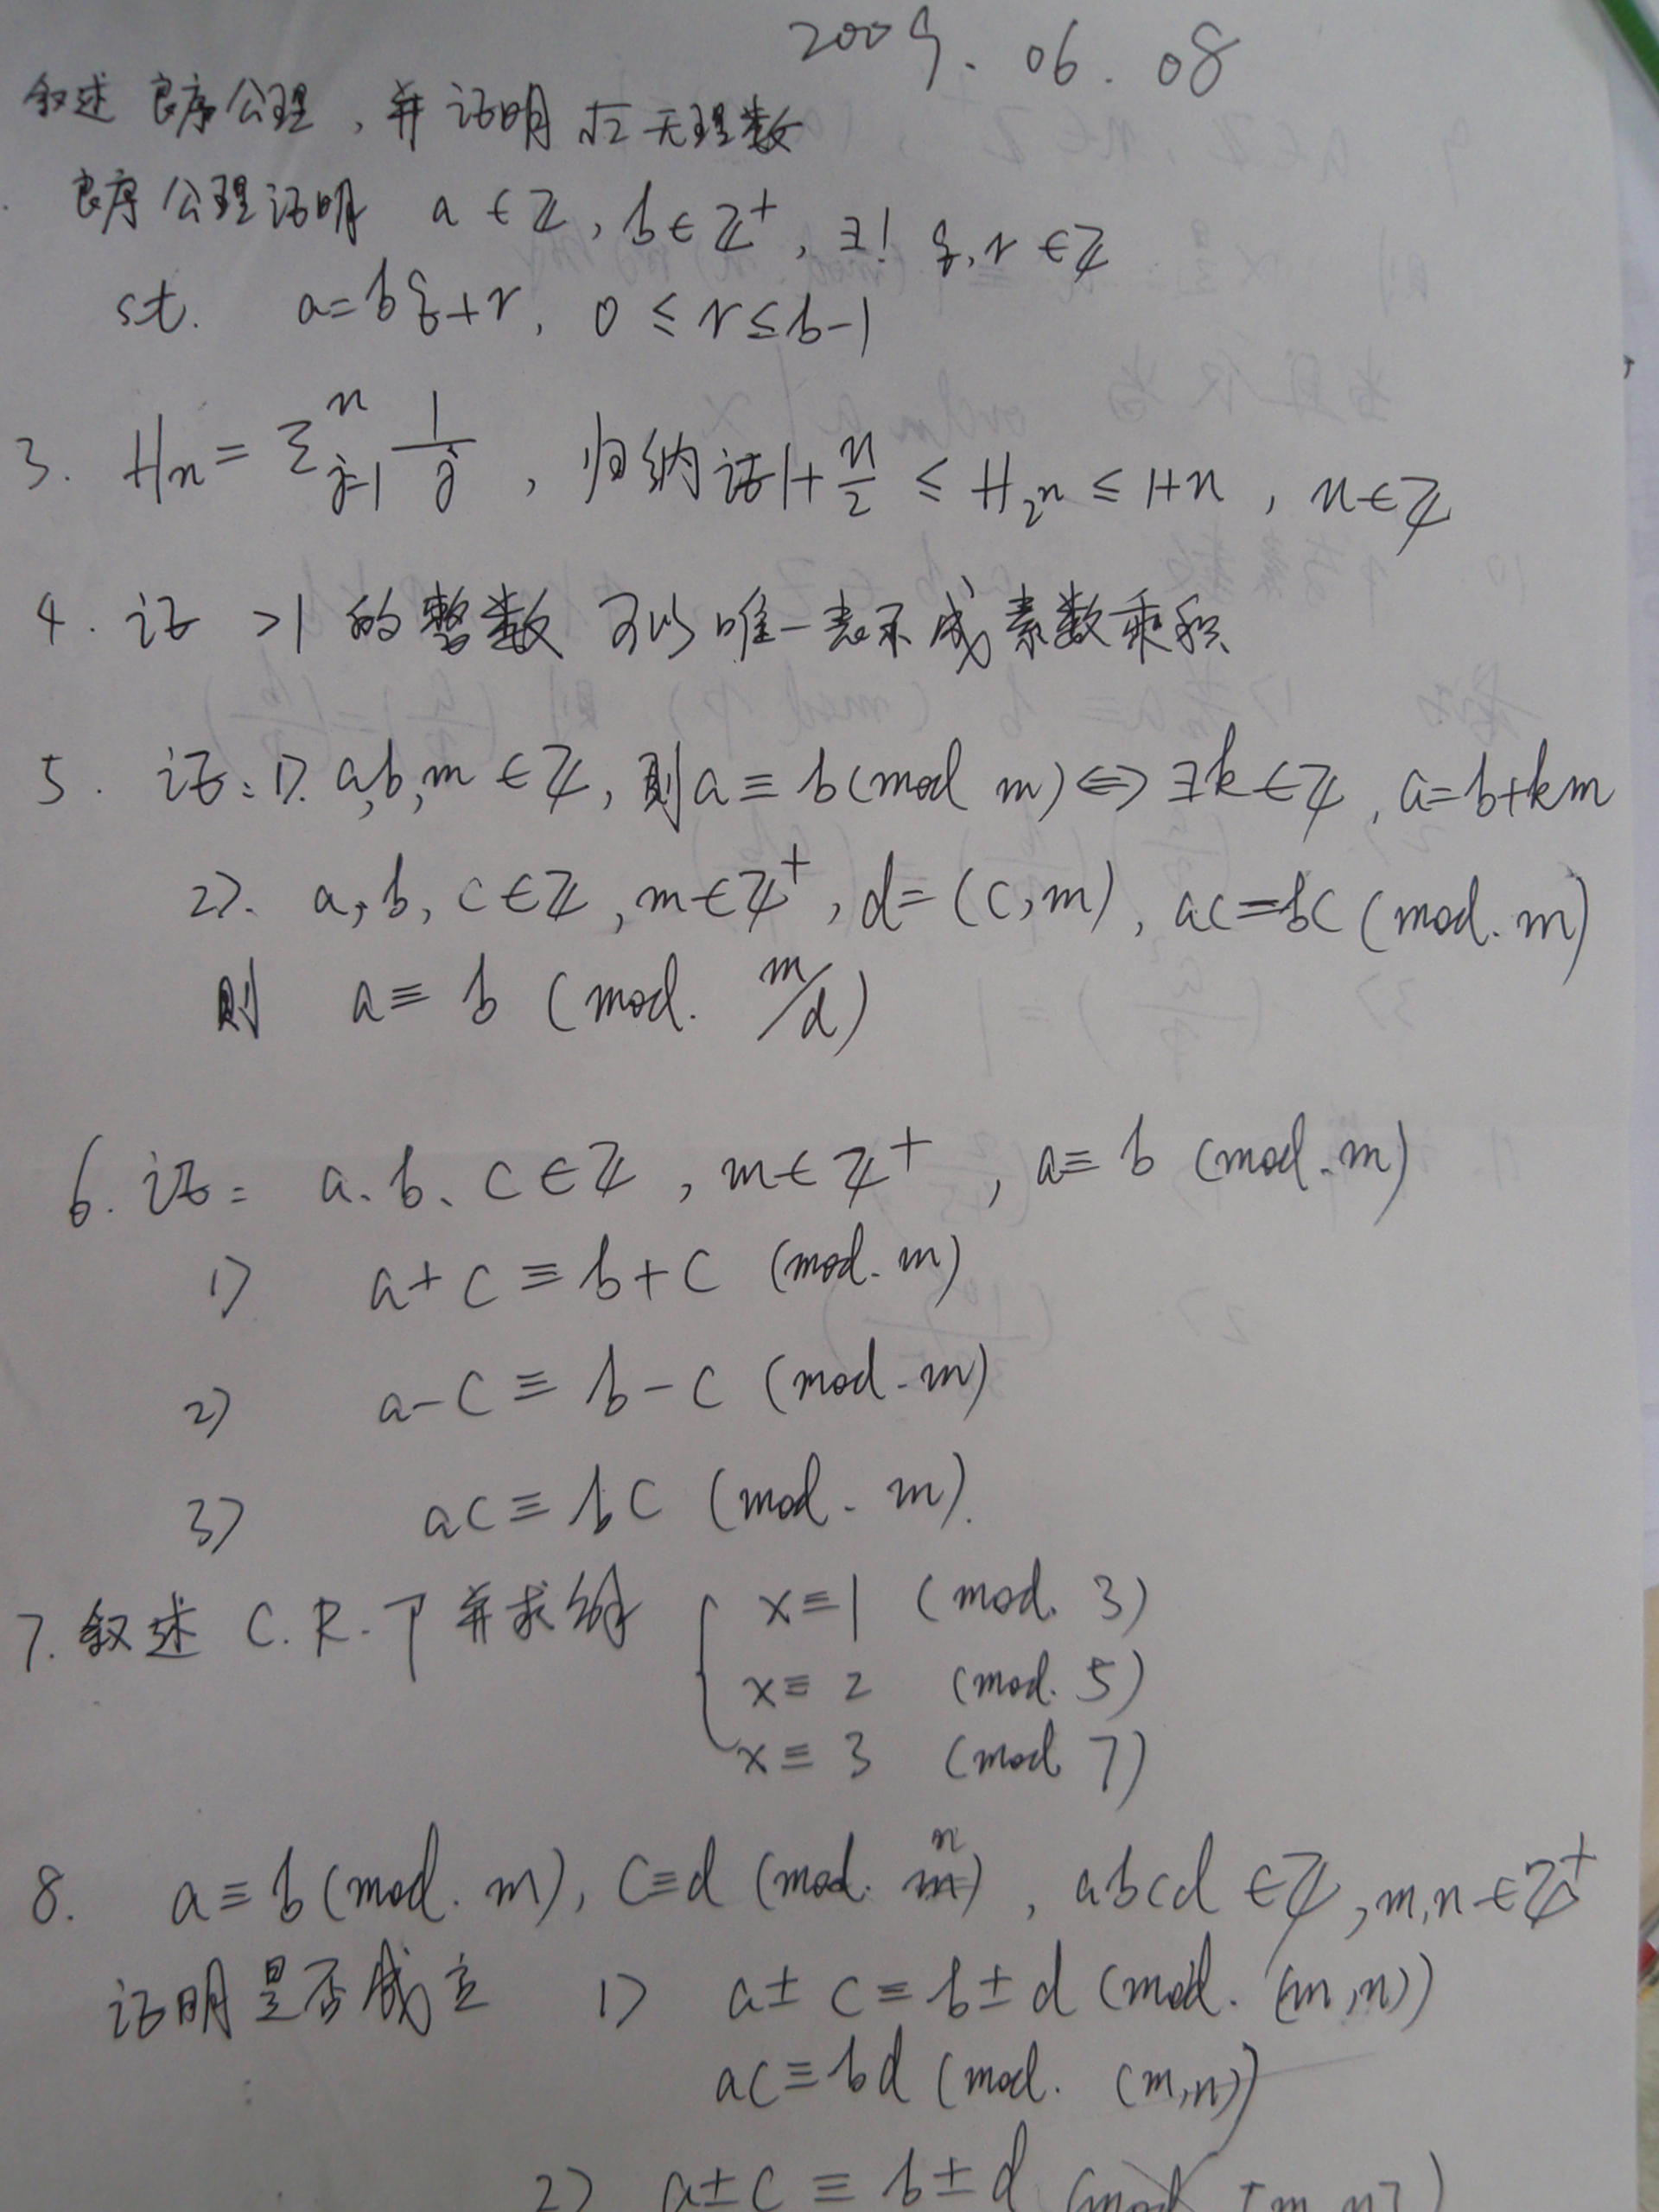 2009.06.08
叙述 良序公理，并证明 √2 无理数
良序公理证明 a∈ℤ, b∈ℤ⁺, ∃! q, r ∈ℤ
st. a=bq+r, 0≤r≤b-1
3. Hn = Σⁿⱼ₌₁ 1/j，归纳证 1+n/2 ≤ H₂ⁿ ≤ 1+n, n∈ℤ
4. 证 >1 的整数 可以唯一表示成素数乘积
5. 证: 1). a,b,m∈ℤ, 则 a≡b(mod m)⇔∃k∈ℤ, a=b+km
2). a,b,c∈ℤ, m∈ℤ⁺, d=(c,m), ac=bc(mod.m)
则 a≡b (mod. m/d)
6. 证: a、b、c∈ℤ, m∈ℤ⁺, a≡b (mod.m)
1) a+c≡b+c (mod.m)
2) a-c≡b-c (mod.m)
3) ac≡bc (mod.m).
7. 叙述 C.R.T 并求解 { x≡1 (mod. 3)
x≡2 (mod. 5)
x≡3 (mod 7)
8. a≡b(mod.m), c≡d (mod. n), abcd∈ℤ, m,n∈ℤ⁺
证明是否成立 1) a±c≡b±d (mod. (m,n))
ac≡bd (mod. (m,n))
2) a±c≡b±d (mod [m,n])